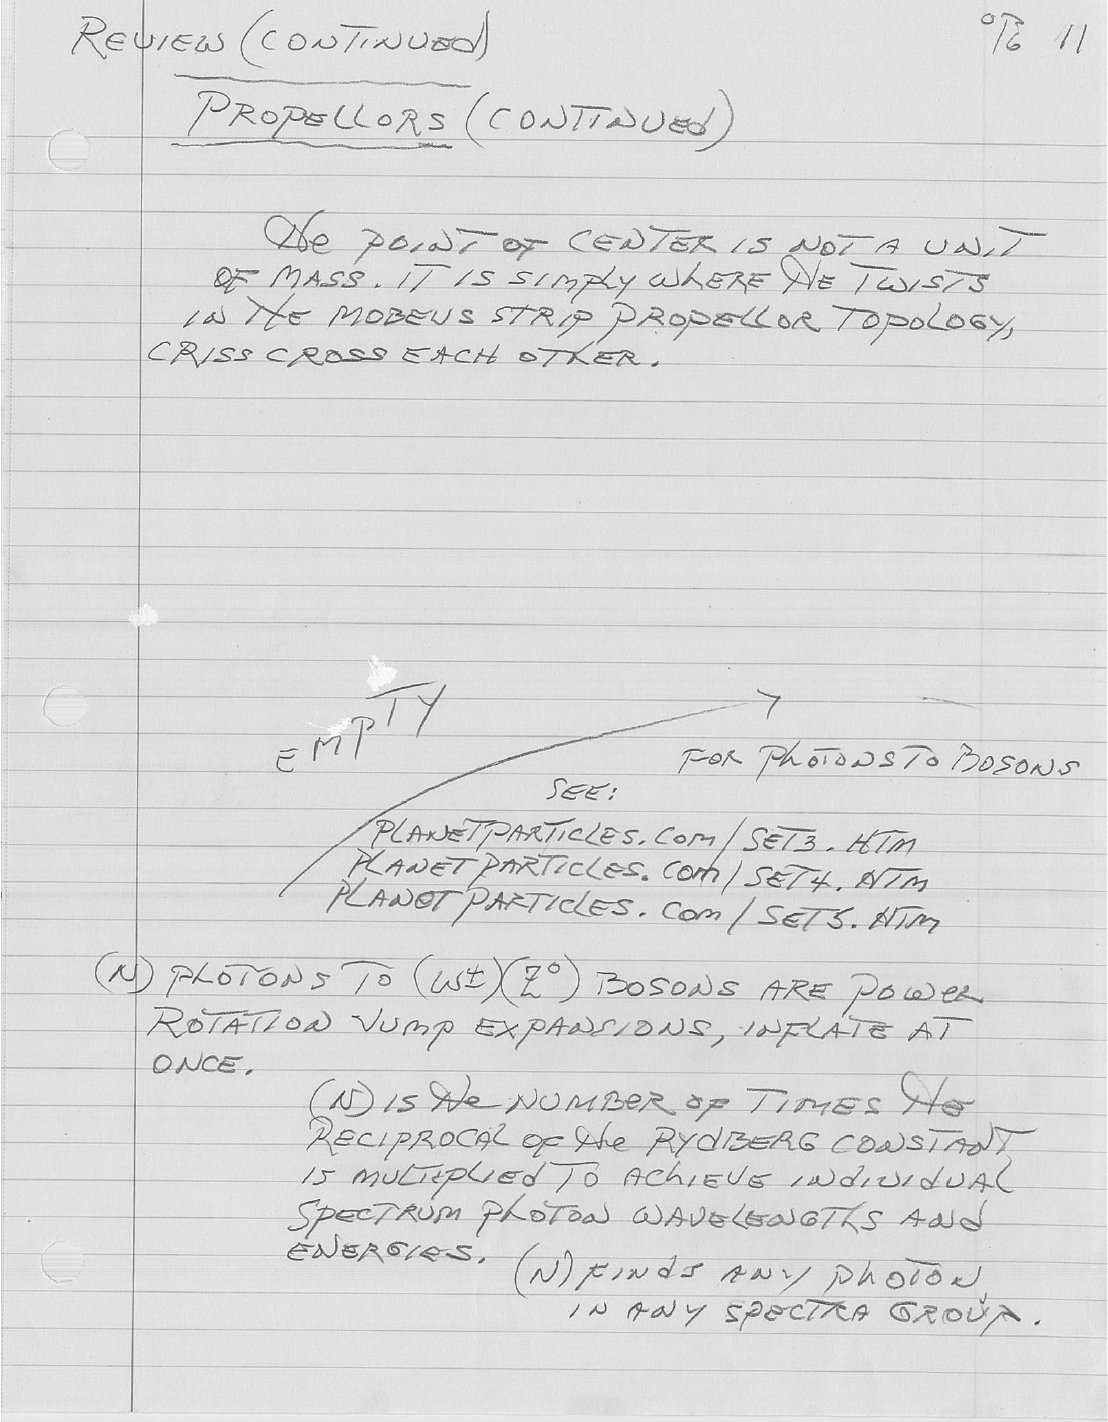 REVIEW (CONTINUED)
Pg 11
PROPELLORS (CONTINUED)
THE POINT OF CENTER IS NOT A UNIT
OF MASS. IT IS SIMPLY WHERE THE TWISTS
IN THE MOBEUS STRIP PROPELLOR TOPOLOGY,
CRISS CROSS EACH OTHER.
EMPTY
FOR PHOTONS TO BOSONS
SEE:
PLANETPARTICLES.COM/SET3.HTM
PLANETPARTICLES.COM/SET4.HTM
PLANETPARTICLES.COM/SET5.HTM
(N) PHOTONS TO (W±)(Z°) BOSONS ARE POWER
ROTATION JUMP EXPANSIONS, INFLATE AT
ONCE.
(N) IS THE NUMBER OF TIMES THE
RECIPROCAL OF THE RYDBERG CONSTANT
IS MULTIPLIED TO ACHIEVE INDIVIDUAL
SPECTRUM PHOTON WAVELENGTHS AND
ENERGIES.
(N) FINDS ANY PHOTON
IN ANY SPECTRA GROUP.